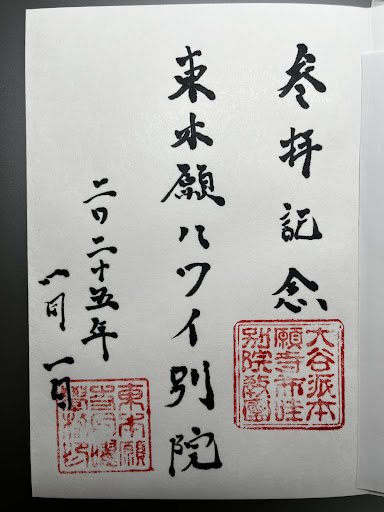 參拝記念
東本願ハワイ別院
二〇二十五年
一月一日
大谷派本
願寺布哇
別院教團
東本願